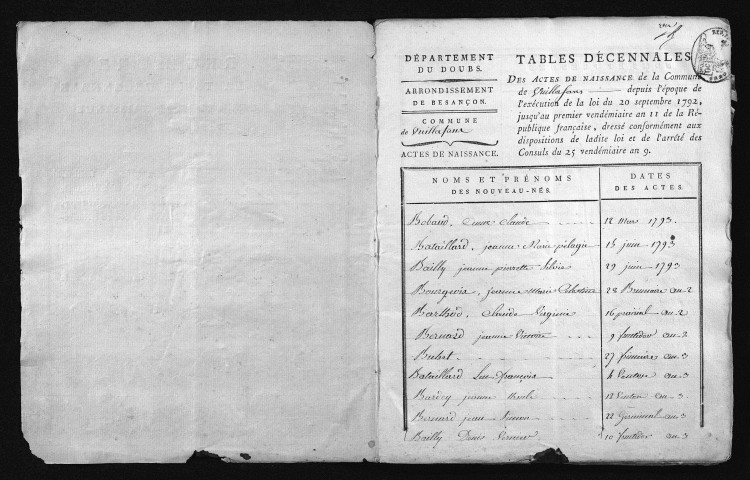 DÉPARTEMENT
DU DOUBS.
ARRONDISSEMENT
DE BESANÇON.
COMMUNE
de Vuillafans
ACTES DE NAISSANCE.
TABLES DÉCENNALES
DES ACTES DE NAISSANCE de la Commune
de Vuillafans depuis l'époque de
l'exécution de la loi du 20 septembre 1792,
jusqu'au premier vendémiaire an 11 de la Ré-
publique française, dressé conformément aux
dispositions de ladite loi et de l'arrêté des
Consuls du 25 vendémiaire an 9.
NOMS ET PRÉNOMS
DES NOUVEAU-NÉS.
DATES
DES ACTES.
Bobaud, Claude 12 mars 1793.
Bataillard, jeanne Marie pélagie 15 juin 1793
Bailly jeanne pierrette Silvie 29 juin 1793
Bourgeois, jeanne Marie Celestine 28 Brumaire an 2
Barthod, Claude 16 prairial an 2
Bernard jeanne 9 fructidor an 2
27 frimaire an 3
Bataillard Luc françois 4 Ventose an 3
jeanne 12 Ventose an 3
Bernard jean Simon 22 germinal an 3
Bailly Denis 10 fructidor an 3